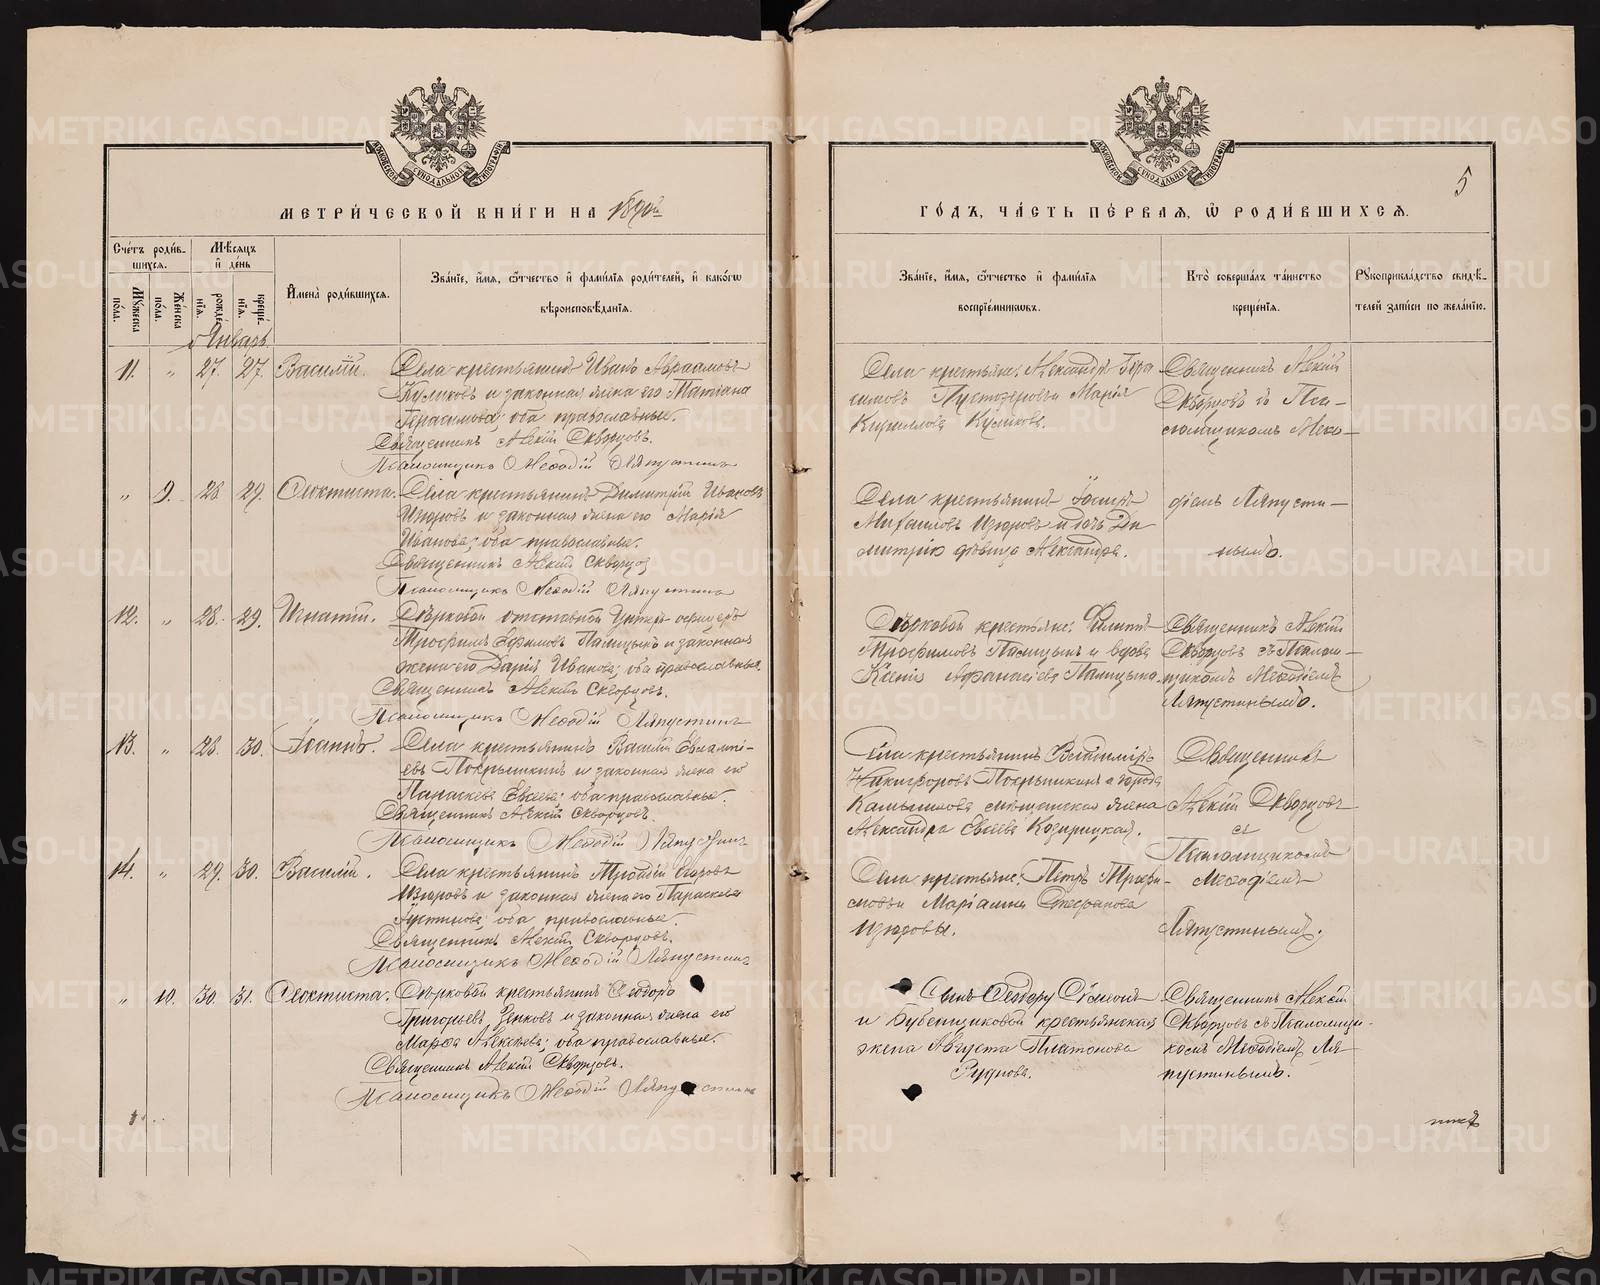 МЕТРИ́ЧЕСКОЙ КНИ́ГИ НА 1890й
ГО́ДЪ, ЧА́СТЬ ПЕ́РВАЯ, Ѽ РОДИ́ВШИХСЯ.
5
Сче́тъ роди́в-
шихся.
Мѣ́сяцъ
и҆ де́нь
Мꙋ́жеска по́ла.
Же́нска по́ла.
рожде́нїѧ.
креще́нїѧ.
И҆мена̀ роди́вшихся.
Зва́нїе, и҆́мѧ, ѻ҆́тчество и҆ фамі́лїѧ роди́телей, и҆ како́гѡ
вѣроисповѣ́данїѧ.
Зва́нїе, и҆́мѧ, ѻ҆́тчество и҆ фамі́лїѧ
воспрїе́мникѡвъ.
Кто̀ соверша́лъ та́инство
креще́нїѧ.
Рꙋкоприкла́дство свидѣ́-
телей за́писи по жела́нїю.
Январь
11. " 27. 27. Василій.
Села крестьянинъ Иванъ Авраамовъ
Куликовъ и законная жена его Татіана
Герасимова; оба православные.
Священникъ Алексій Скворцовъ.
Псаломщикъ Меѳодій Ляпустинъ
Села крестьяне: Александръ Гера
симовъ Пустозеровъ и Марія
Кириллова Куликова.
Священникъ Алексій
Скворцовъ съ Пса-
ломщикомъ Меѳо-
" 9. 28 29. Ѳеоктиста.
Села крестьянинъ Димитрій Ивановъ
Изюровъ и законная жена его Марія
Иванова; оба православные.
Священникъ Алексій Скворцовъ
Псаломщикъ Меѳодій Ляпустинъ
Села крестьянинъ Іосифъ
Михаиловъ Изюровъ и дочь Ди
митрія дѣвица Александра.
діемъ Ляпусти-
нымъ.
12. " 28. 29. Игнатій.
отставной Унтеръ-офицеръ
Трофимъ Ефимовъ Палицынъ и законная
жена его Дарія Иванова; оба православные.
Священникъ Алексій Скворцовъ.
Псаломщикъ Меѳодій Ляпустинъ
крестьяне: Филиппъ
Трофимовъ Палицынъ и вдова
Ксенія Афанасіева Палицына.
Священникъ Алексій
Скворцовъ съ Псалом-
щикомъ Меѳодіемъ
Ляпустинымъ.
13. " 28. 30. Іоаннъ.
Села крестьянинъ Василій Евлампі-
евъ Покрышкинъ и законная жена его
Параскева Евсеева; оба православные.
Священникъ Алексій Скворцовъ.
Псаломщикъ Меѳодій Ляпустинъ
Села крестьянинъ Владиміръ
Никифоровъ Покрышкинъ и города
Камышлова мѣщанская жена
Александра Евсеева
Священникъ
Алексій Скворцовъ
съ
Псаломщикомъ
Меѳодіемъ
Ляпустинымъ.
14. " 29. 30. Василій.
Села крестьянинъ Егоровъ
Изюровъ и законная жена его Параскева
Іустинова; оба православные.
Священникъ Алексій Скворцовъ.
Псаломщикъ Меѳодій Ляпустинъ
Села крестьяне: Петръ
и Маріамна Стефанова
Изюровы.
" 10. 30. 31. Ѳеоктиста.
крестьянинъ Ѳеодоръ
Григорьевъ Зенковъ и законная жена его
Марѳа Алексѣева; оба православные.
Священникъ Алексій Скворцовъ.
Псаломщикъ Меѳодій Ляпустинъ
Сынъ Ѳеодору
и крестьянская
жена Августа Платонова
Руднова.
Священникъ Алексій
Скворцовъ съ Псаломщи-
комъ Меѳодіемъ Ля-
пустинымъ.
METRIKI.GASO-URAL.RU